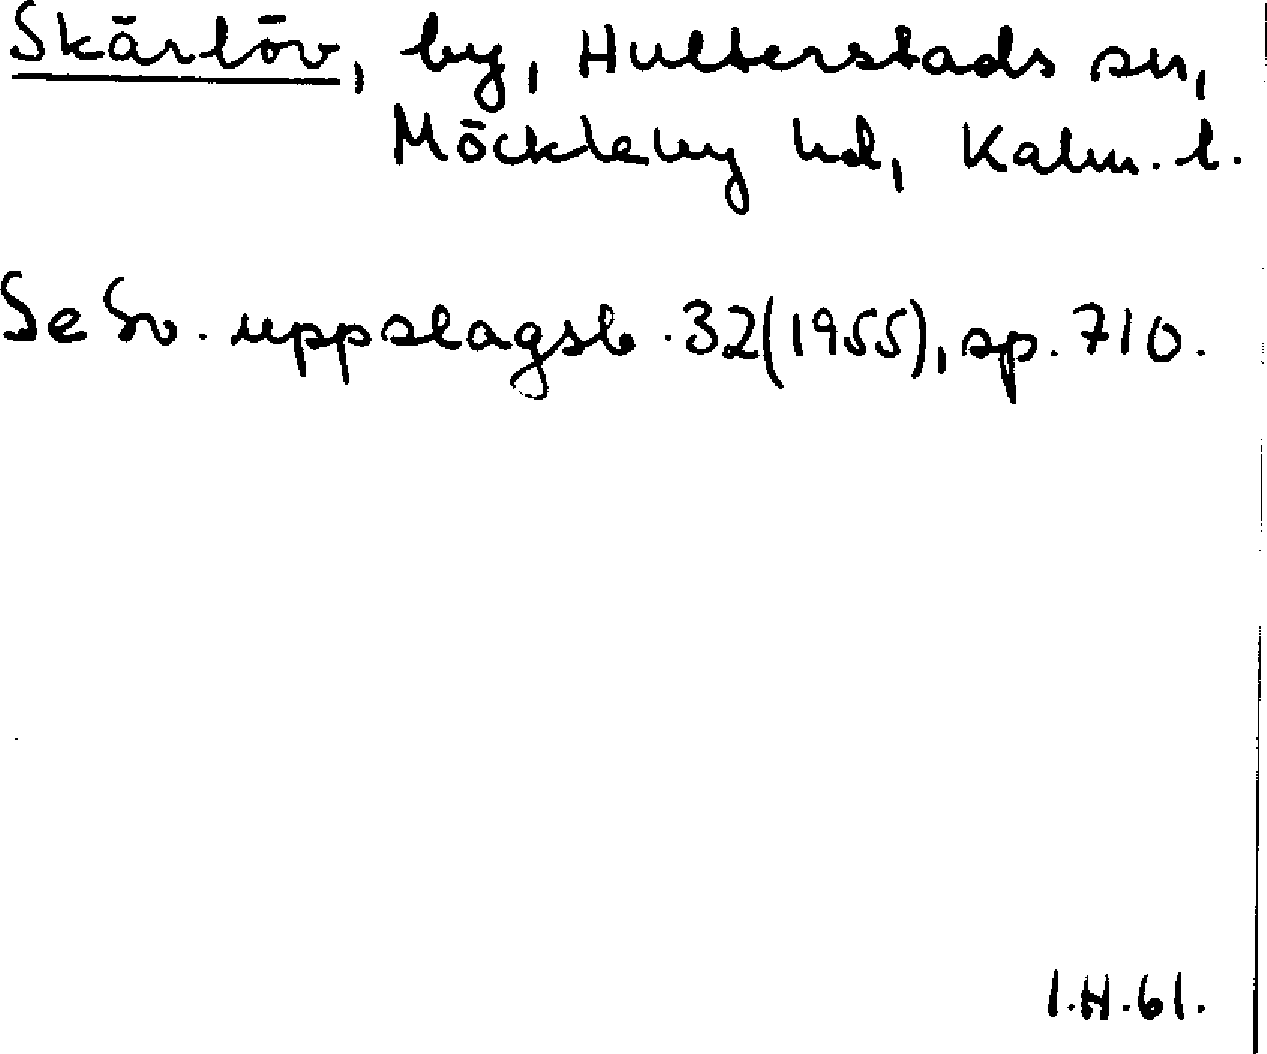 Skärlöv, by, Hulterstads sn,
Möckleby hd, Kalm. l.
Se Sv. uppslagsb. 32(1955), sp. 710.
I.H.61.